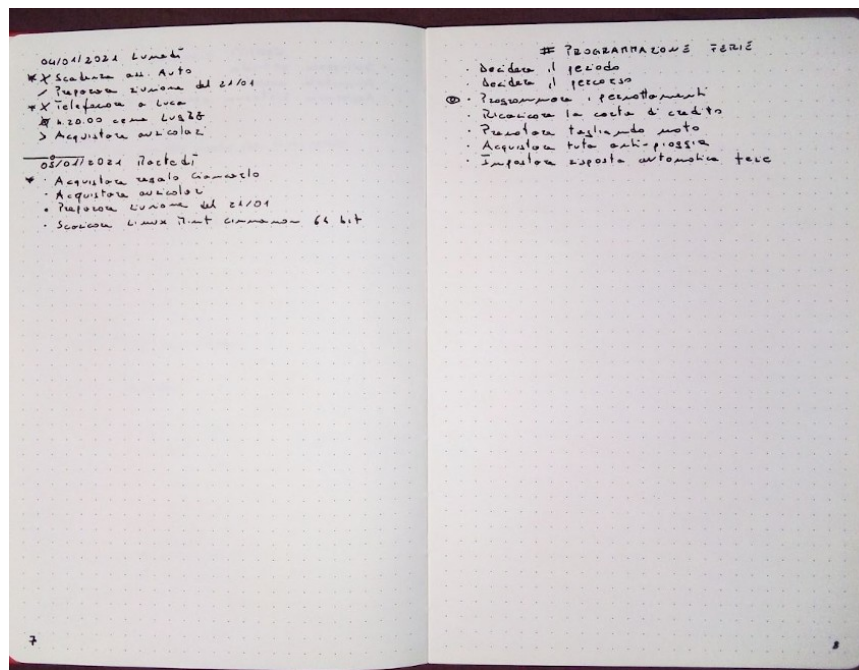 04/01/2021 Lunedì
* X Scadenza ass. Auto
/ Preparare riunione del 21/01
* X Telefonare a Luca
h.20.00 cena
> Acquistare auricolari
05/01/2021 Martedì
* · Acquistare regalo Giancarlo
· Acquistare auricolari
· Preparare riunione del 21/01
· Scaricare Linux Mint cinnamon 64 bit
7
# PROGRAMMAZIONE FERIE
· Decidere il periodo
· Decidere il percorso
· Programmare i pernottamenti
· Ricaricare la carta di credito
· Prenotare tagliando moto
· Acquistare tuta anti-pioggia
· Impostare risposta automatica
8